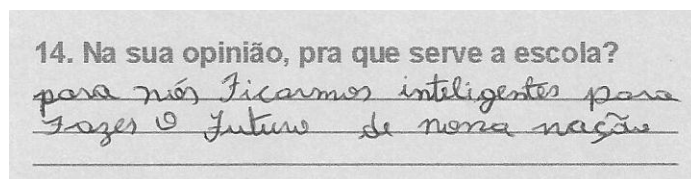 14. Na sua opinião, pra que serve a escola?
para nós Ficarmos inteligentes para
Fazer o futuro de nossa nação